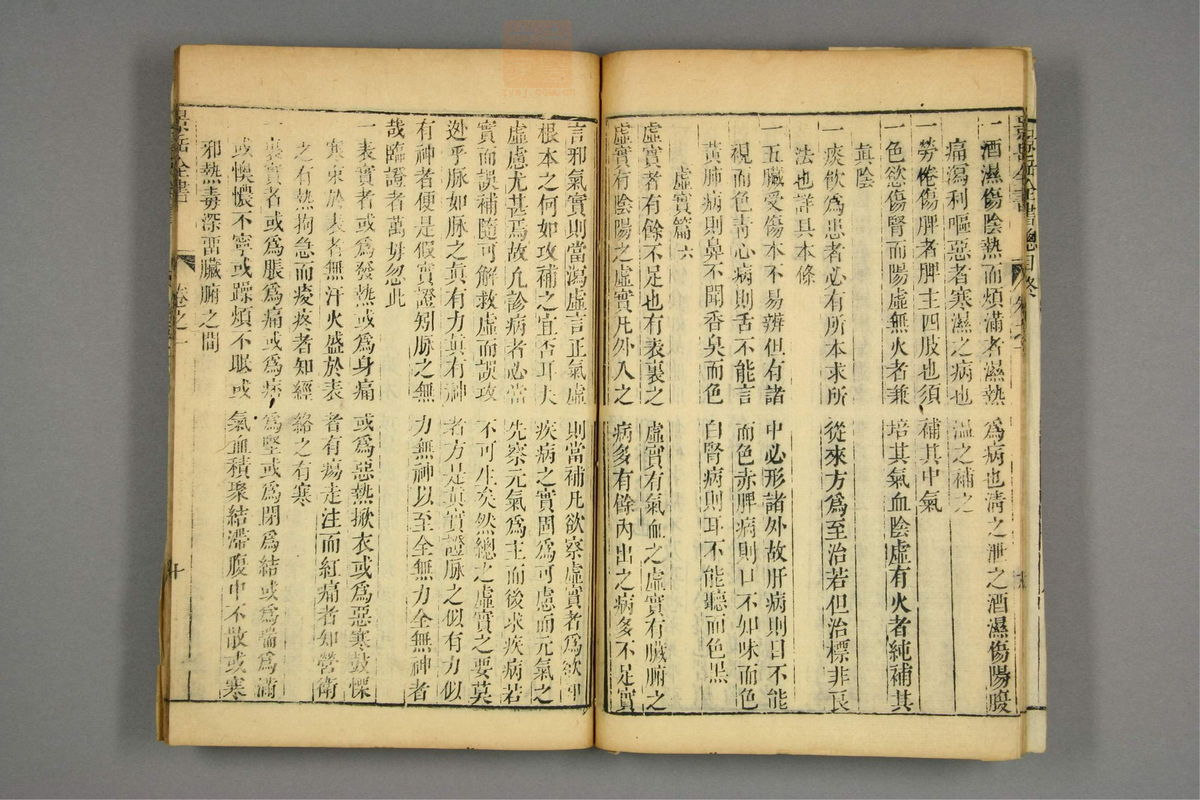 一酒濕傷陰熱而煩滿者濕熱爲病也清之泄之酒濕傷陽腹
痛瀉利嘔惡者寒濕之病也溫之補之
一勞倦傷脾者脾主四肢也須補其中氣
一色慾傷腎而陽虛無火者兼培其氣血陰虛有火者純補其
眞陰
一痰飲爲患者必有所本求所從來方爲至治若但治標非良
法也詳具本條
一五臟受傷本不易辨但有諸中必形諸外故肝病則目不能
視而色靑心病則舌不能言而色赤脾病則口不知味而色
黃肺病則鼻不聞香臭而色白腎病則耳不能聽而色黑
虛實篇六
虛實者有餘不足也有表裏之虛實有氣血之虛實有臟腑之
虛實有陰陽之虛實凡外入之病多有餘內出之病多不足實
言邪氣實則當瀉虛言正氣虛則當補凡欲察虛實者爲欲知
根本之何如攻補之宜否耳夫疾病之實固爲可慮而元氣之
虛慮尤甚焉故凡診病者必當先察元氣爲主而後求疾病若
實而誤補隨可解救虛而誤攻不可生矣然總之虛實之要莫
逃乎脉如脉之眞有力眞有神者方是眞實證脉之似有力似
有神者便是假實證矧脉之無力無神以至全無力全無神者
哉臨證者萬毋忽此
一表實者或爲發熱或爲身痛或爲惡熱掀衣或爲惡寒鼓慄
寒束於表者無汗火盛於表者有瘍走注而紅痛者知營衛
之有熱拘急而痠疼者知經絡之有寒
裏實者或爲脹爲痛或爲痞爲堅或爲閉爲結或爲喘爲滿
或懊憹不寧或躁煩不眠或氣血積聚結滯腹中不散或寒
邪熱毒深畱臟腑之間
景岳全書 卷之一 十